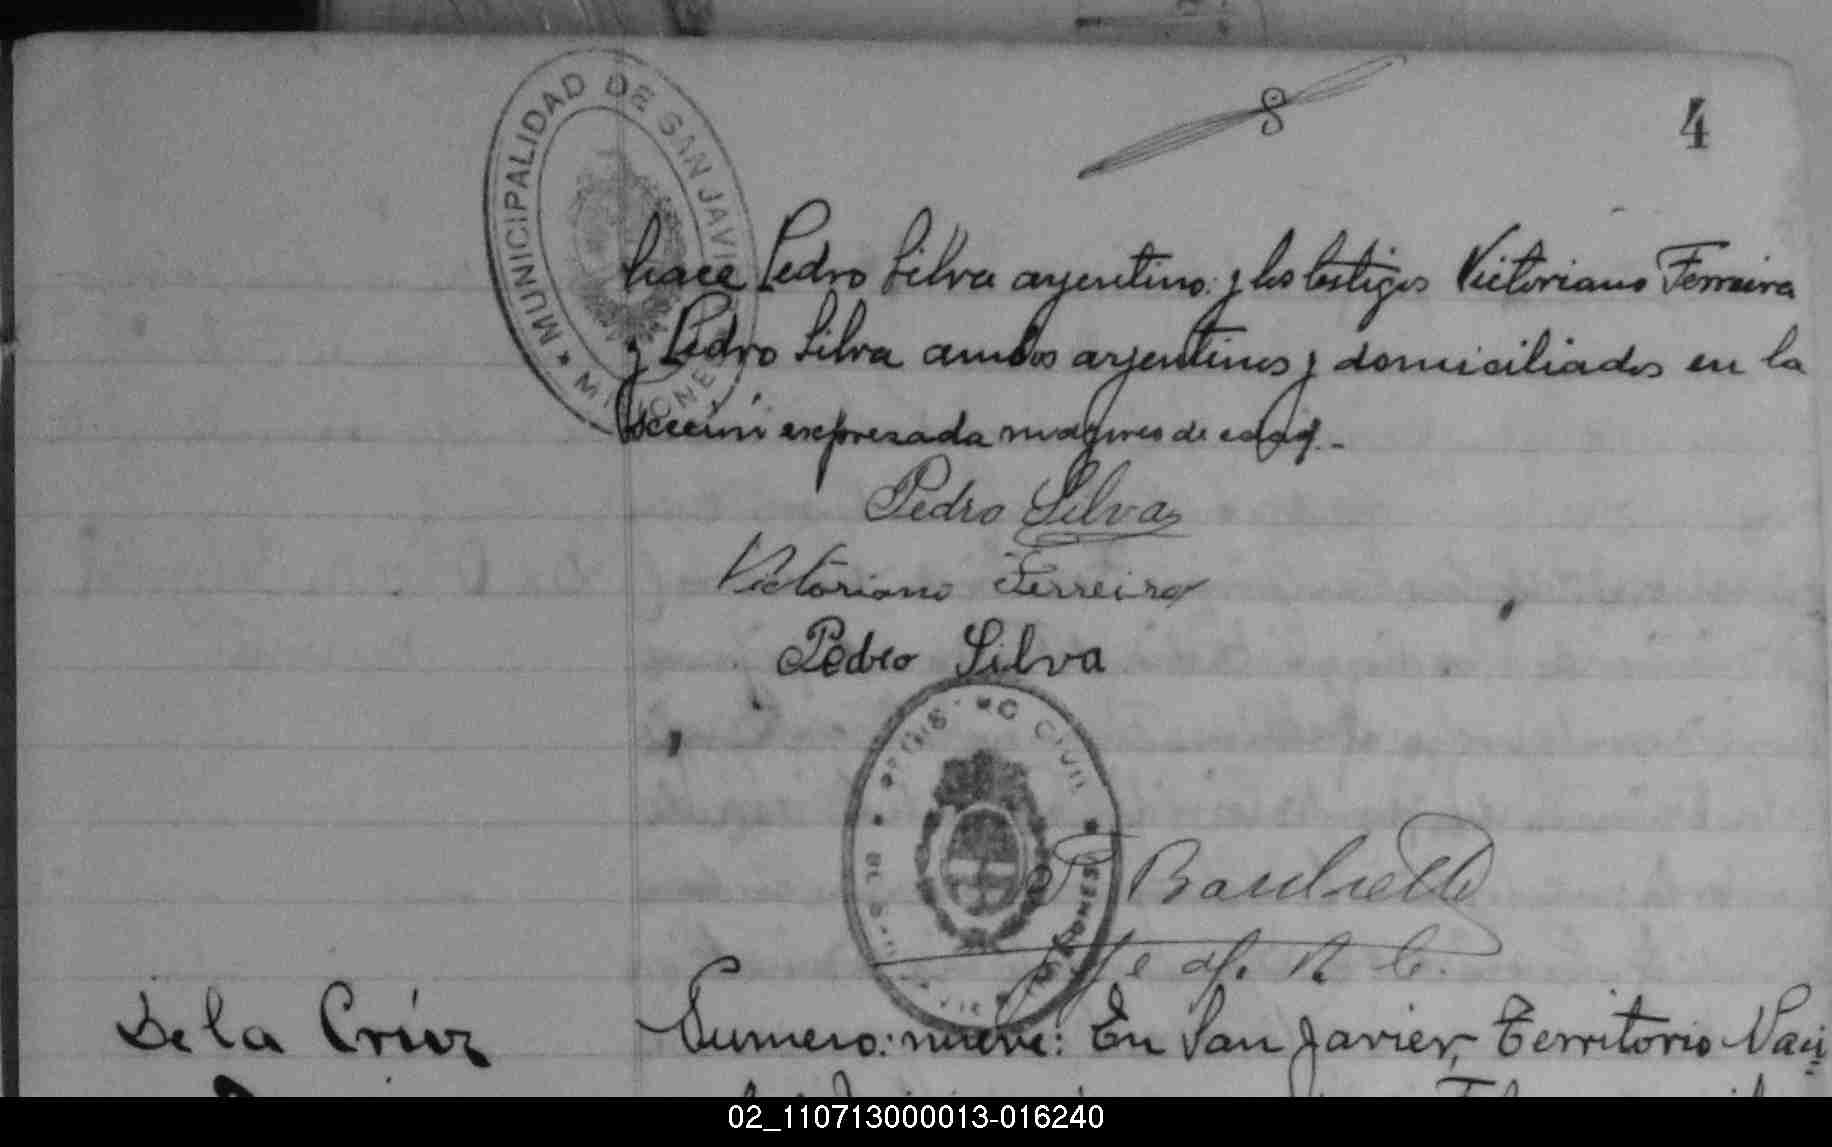 MUNICIPALIDAD DE SAN JAVIER
* MISIONES *
8
4
hace Pedro Silva argentino: y los testigos Victoriano Ferreira
y Pedro Silva ambos argentinos y domiciliados en la
sección expresada mayores de edad.-
Pedro Silva
Victoriano Ferreira
Pedro Silva
REGISTRO CIVIL
DE SAN JAVIER
MISIONES
Jefe del R. C.
De la Crúz
Numero: nueve: En San Javier, Territorio Naci
02_110713000013-016240